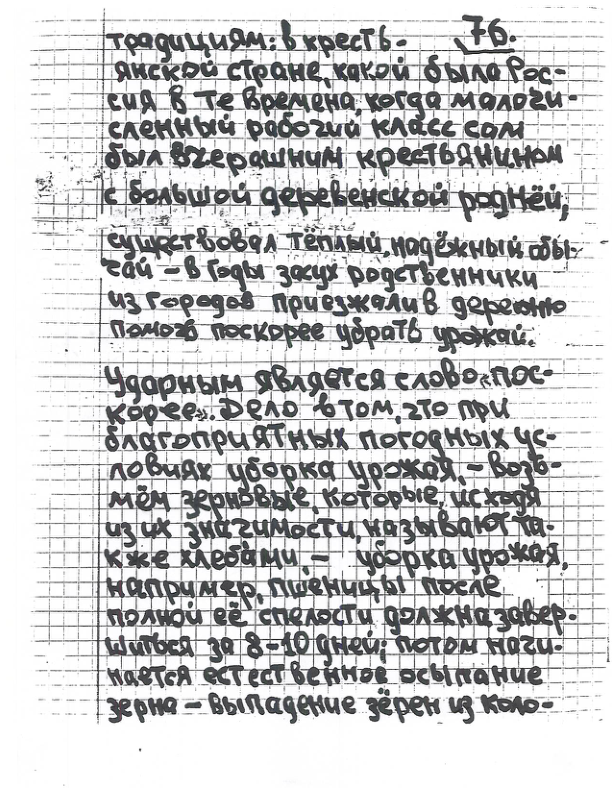 76.
традициям: в кресть-
янской стране, какой была Рос-
сия в те времена, когда малочи-
сленный рабочий класс сам
был вчерашним крестьянином
с большой деревенской роднёй,
существовал тёплый, надёжный обы-
чай – в годы засух родственники
из городов приезжали в деревню
помочь поскорее убрать урожай.
Ударным является слово «пос-
корее». Дело в том, что при
благоприятных погодных ус-
ловиях уборка урожая, – возь-
мём зерновые, которые, исходя
из их значимости, называют та-
кже хлебами, – уборка урожая,
например, пшеницы после
полной её спелости должна завер-
шиться за 8-10 дней; потом начи-
нается естественное осыпание
зерна – выпадение зёрен из коло-